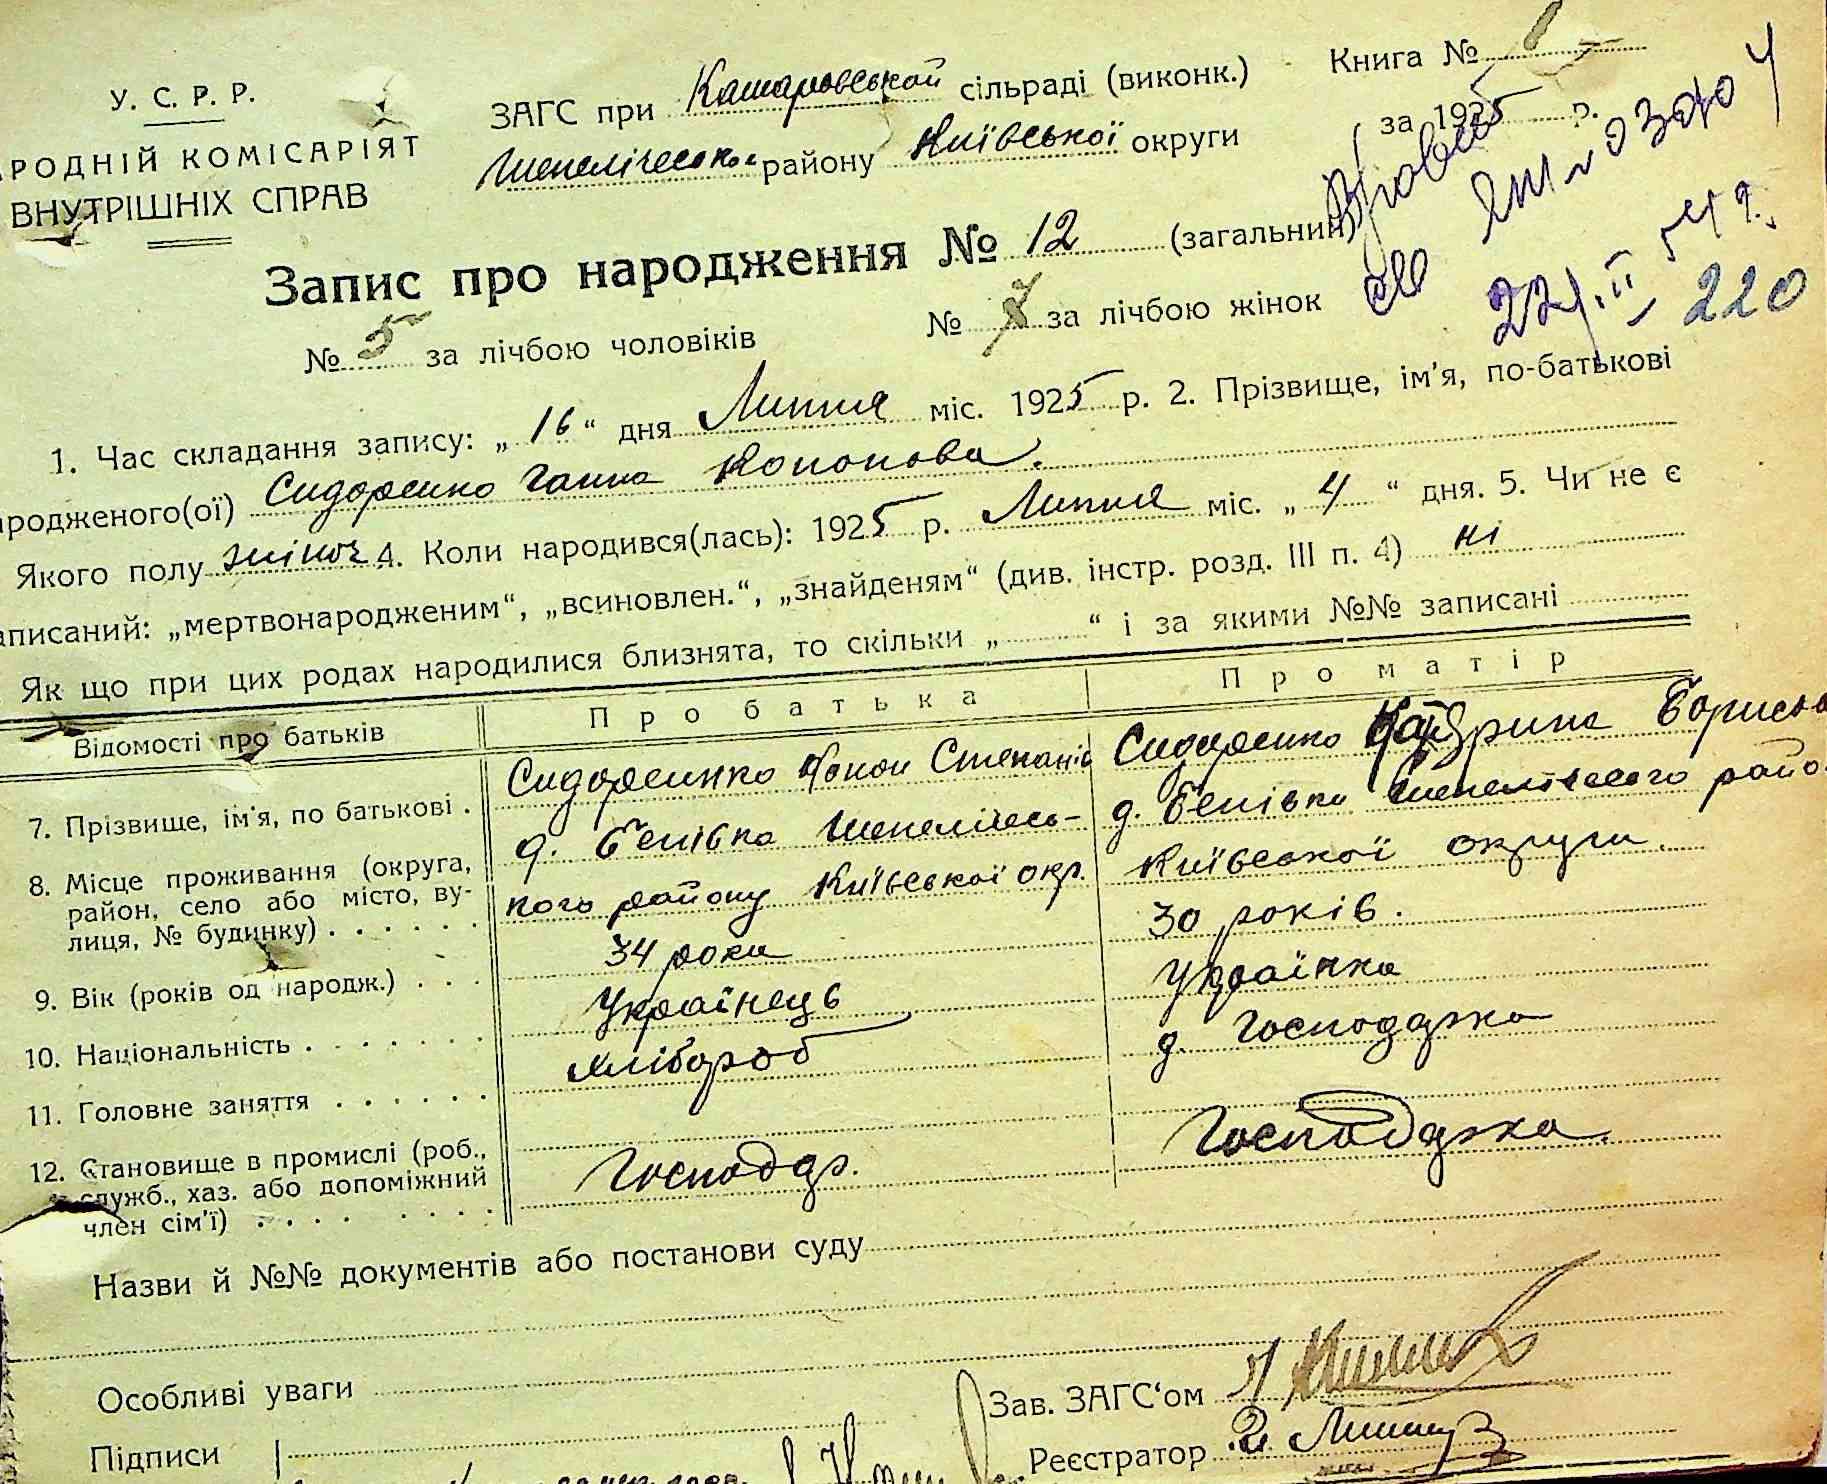 У. С. Р. Р.
РОДНІЙ КОМІСАРІЯТ
ВНУТРІШНІХ СПРАВ
ЗАГС при Кашаровській сільраді (виконк.)
району Київської округи
Книга № 1
за 1925 р.
Запис про народження № 12 (загальний)
№ 5 за лічбою чоловіків № 7 за лічбою жінок
220
1. Час складання запису: „16“ дня Липня міс. 1925 р. 2. Прізвище, ім'я, по-батькові
ародженого(ої) Сидоренко Ганна Кононова.
Якого полу жіноч 4. Коли народився(лась): 1925 р. Липня міс. „4“ дня. 5. Чи не є
аписаний: „мертвонародженим“, „всиновлен.“, „знайденям“ (див. інстр. розд. III п. 4) ні
Як що при цих родах народилися близнята, то скільки „ “ і за якими №№ записані
Відомості про батьків Про батька Про матір
7. Прізвище, ім'я, по батькові . Сидоренко Конон Степанів Сидоренко Катерина Борисова
8. Місце проживання (округа, район, село або місто, вулиця, № будинку) . . . . . . д. Бенівка Шепелічесь-
кого району Київської окр. д. Бенівка Шепеліческого райо
Київської округи.
9. Вік (років од народж.) . . . 34 роки 30 років.
10. Національність . . . . . . . Українець Українка
11. Головне заняття . . . . . . Хлібороб д. Господарка
12. Становище в промислі (роб., служб., хаз. або допоміжний член сім'ї) . . . . . . . . Господар. Господарка.
Назви й №№ документів або постанови суду
Особливі уваги
Зав. ЗАГС‘ом
Підписи
Реєстратор